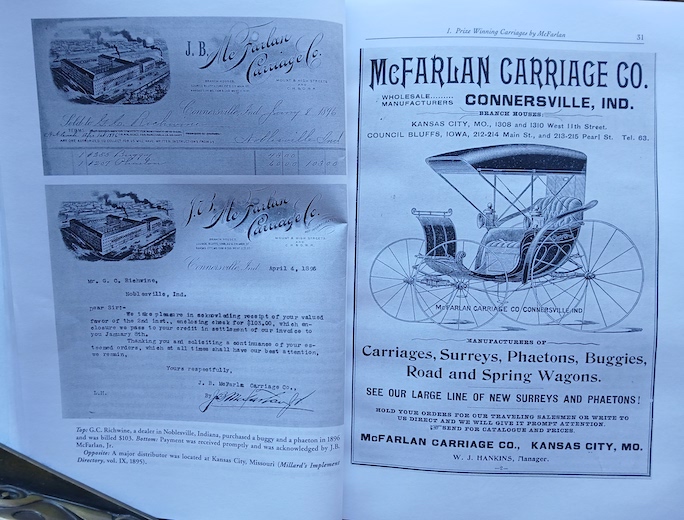 J. B. McFarlan
Carriage Co.
BRANCH HOUSE
Connersville, Ind. January 8 1896
Sold to
Noblesville Ind
J. B. McFarlan
Carriage Co.
BRANCH HOUSE
Connersville, Ind. April 4, 1896
Mr. G. C. Richwine,
Noblesville, Ind.
Dear Sir:-
We take pleasure in acknowledging receipt of your valued
favor of the 2nd inst., enclosing check for $103.00, which en-
closure we pass to your credit in settlement of our invoice to
you January 8th.
Thanking you and soliciting a continuance of your es-
teemed orders, which at all times shall have our best attention,
we remain.
Yours respectfully,
J. B. McFarlan Carriage Co.,
By
Top: G.C. Richwine, a dealer in Noblesville, Indiana, purchased a buggy and a phaeton in 1896
and was billed $103. Bottom: Payment was received promptly and was acknowledged by J.B.
McFarlan, Jr.
Opposite: A major distributor was located at Kansas City, Missouri (Millard's Implement
Directory, vol. IX, 1895).
1. Prize Winning Carriages by McFarlan 31
McFARLAN CARRIAGE CO.
WHOLESALE.........
MANUFACTURERS CONNERSVILLE, IND.
BRANCH HOUSES:
KANSAS CITY, MO., 1308 and 1310 West 11th Street.
COUNCIL BLUFFS, IOWA, 212-214 Main St., and 213-215 Pearl St. Tel. 63.
McFARLAN CARRIAGE CO. CONNERSVILLE, IND
MANUFACTURERS OF
Carriages, Surreys, Phaetons, Buggies,
Road and Spring Wagons.
SEE OUR LARGE LINE OF NEW SURREYS AND PHAETONS!
HOLD YOUR ORDERS FOR OUR TRAVELING SALESMEN OR WRITE TO
US DIRECT AND WE WILL GIVE IT PROMPT ATTENTION.
SEND FOR CATALOGUE AND PRICES.
McFARLAN CARRIAGE CO., KANSAS CITY, MO.
W. J. HANKINS, Manager.